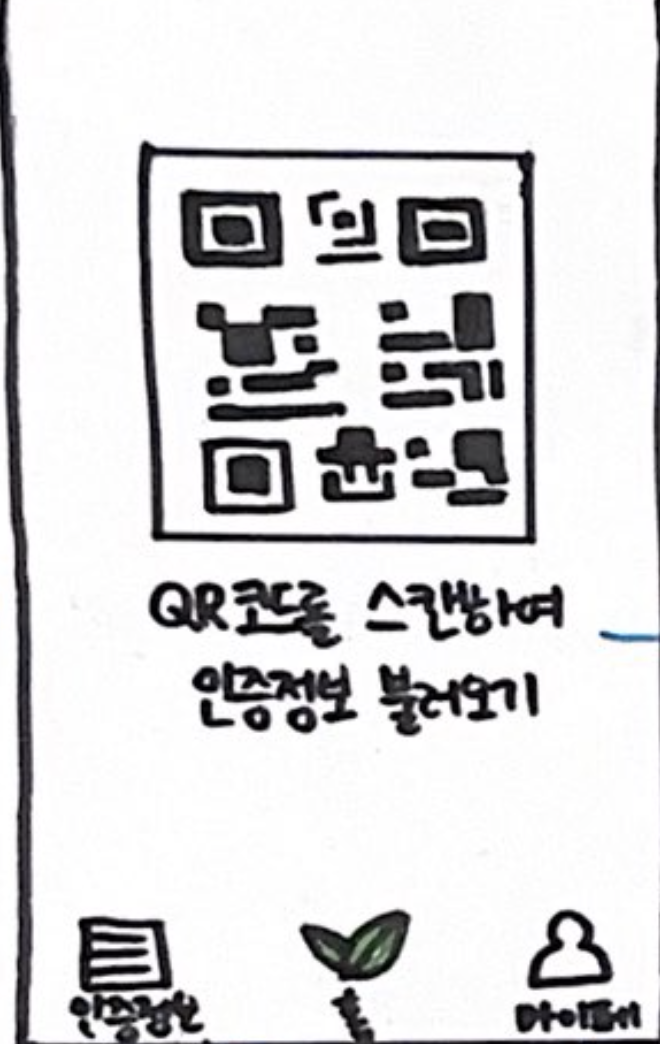 QR코드를 스캔하여
인증정보 불러오기
인증정보
홈
마이페